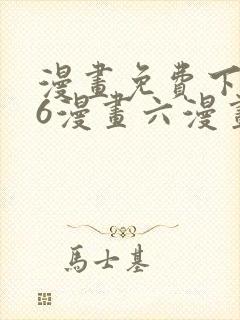 漫畫免費下
6漫畫六漫畫
馬士基